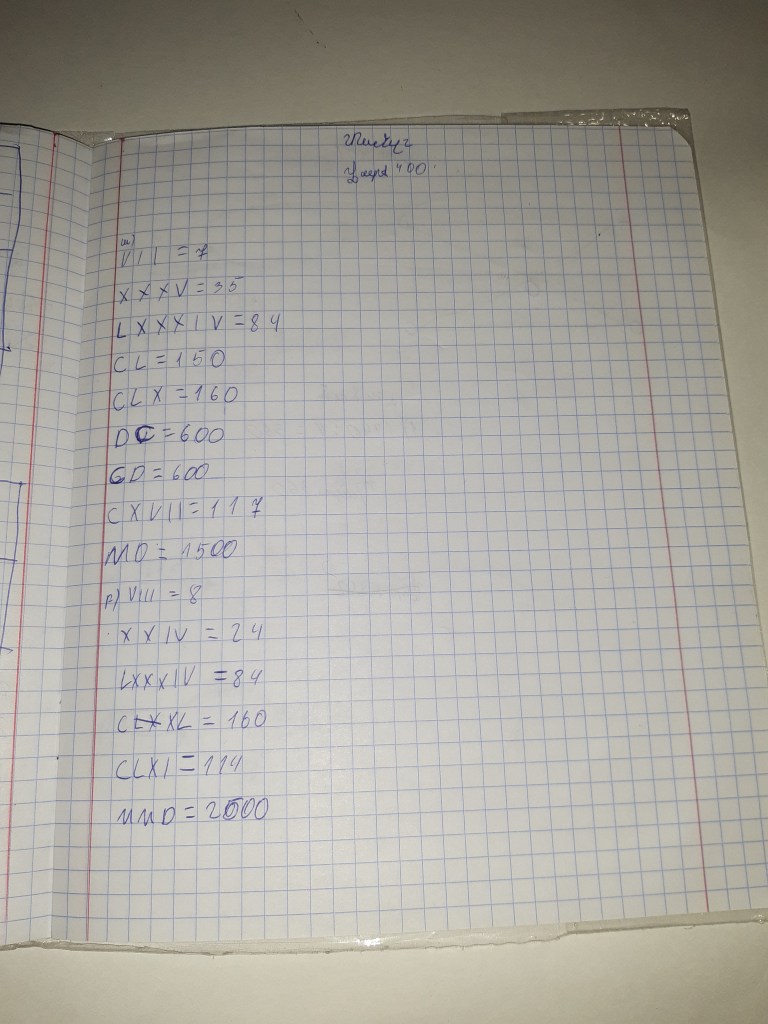 400
а)
VII = 7
XXXV = 35
LXXXIV = 84
CL = 150
CLX = 160
DC = 600
CD = 600
CXVII = 117
MD = 1500
VIII = 8
XXIV = 24
LXXXIV = 84
CLXXL = 160
CLXI = 114
MMD = 2500